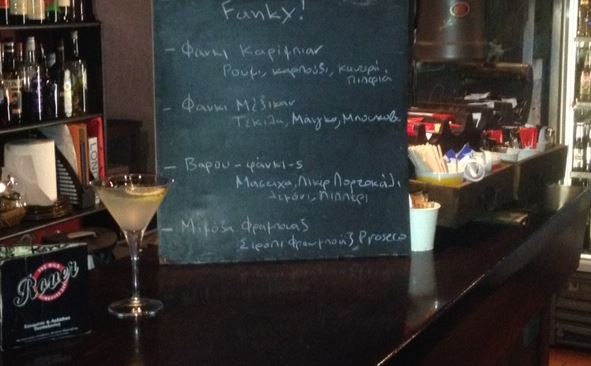 Fanky!
- Φανκι Καρίμπιαν
Ρουμι, καρπούζι, καυτερή
πιπεριά
- Φανκι Μέξικαν
Τεκίλα, Μάνγκο, Μπουκοβο
- Βαρου-φάνκι-s
Μαστιχα, Λικρ Πορτοκάλι
Λεμόνι, Πιππέρι
- Μιμόζα Φραμπουαζ
Σιρόπι Φραμπουάζ Prosecco
Rover